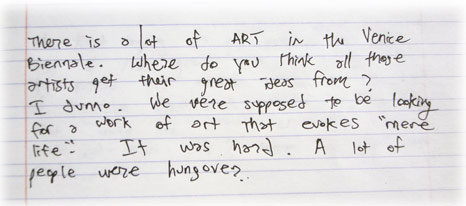 There is a lot of ART in the Venice
Biennale. Where do you think all those
artists get their great ideas from?
I dunno. We were supposed to be looking
for a work of art that evokes "mere
life." It was hard. A lot of
people were hungover.